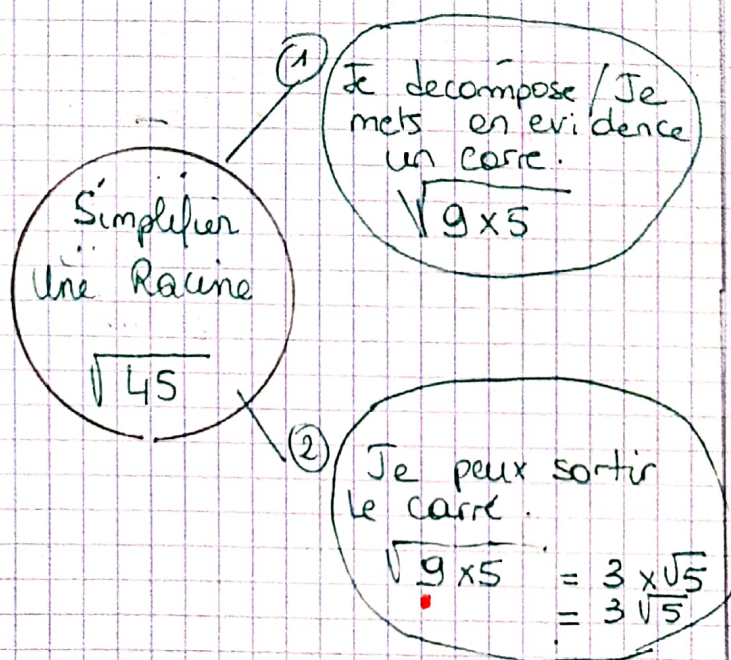 Simplifier
Une Racine
√45
①
Je decompose / Je
mets en evidence
un carre.
√9×5
②
Je peux sortir
le carré.
√9×5 = 3 ×√5
= 3√5